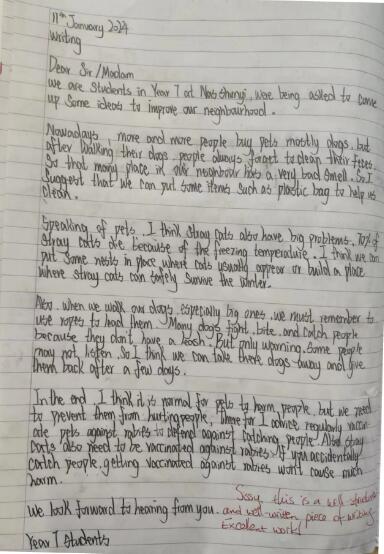 11th January 2024
Writing
Dear Sir/Madam
we are students in Year 7 at Nas Shunyi, were being asked to come
up some ideas to improve our neighbourhood.
Nowadays, more and more people buy pets mostly dogs. but
after walking their dogs, people always forget to clean their feces.
So that many place in our neighbour has a very bad smell. So I
suggest that we can put some items such as plastic bag to help us
clean.
Speaking of pets. I think stray cats also have big problems. 70% of
stray cats die because of the freezing temperature. I think we can
put some nests in place where cats usually appear or build a place
where stray cats can safely survive the winter.
Also, when we walk our dogs, especially big ones, we must remember to
use ropes to lead them. Many dogs fight, bite, and catch people
because they don't have a leash. But only warning, some people
may not listen. So I think we can take there dogs away and give
them back after a few days.
In the end, I think it is normal for pets to harm people, but we need
to prevent them from hurting people, there for I advice regularly vaccin-
ate pets against rabies to defend against catching people. Also stray
cats also need to be vaccinated against rabies. If you accidentally
catch people, getting vaccinated against rabies won't cause much
harm.
we look forward to hearing from you.
Year 7 Students
this is a well structured
and well-written piece of writing.
Excellent work!